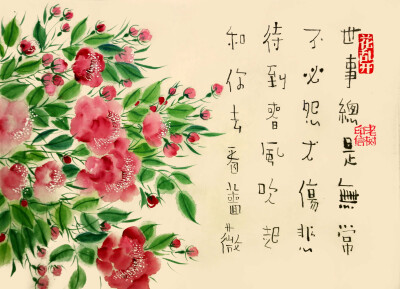 世事總是無常
不必怨尤傷悲
待到春風吹起
和你去看薔薇